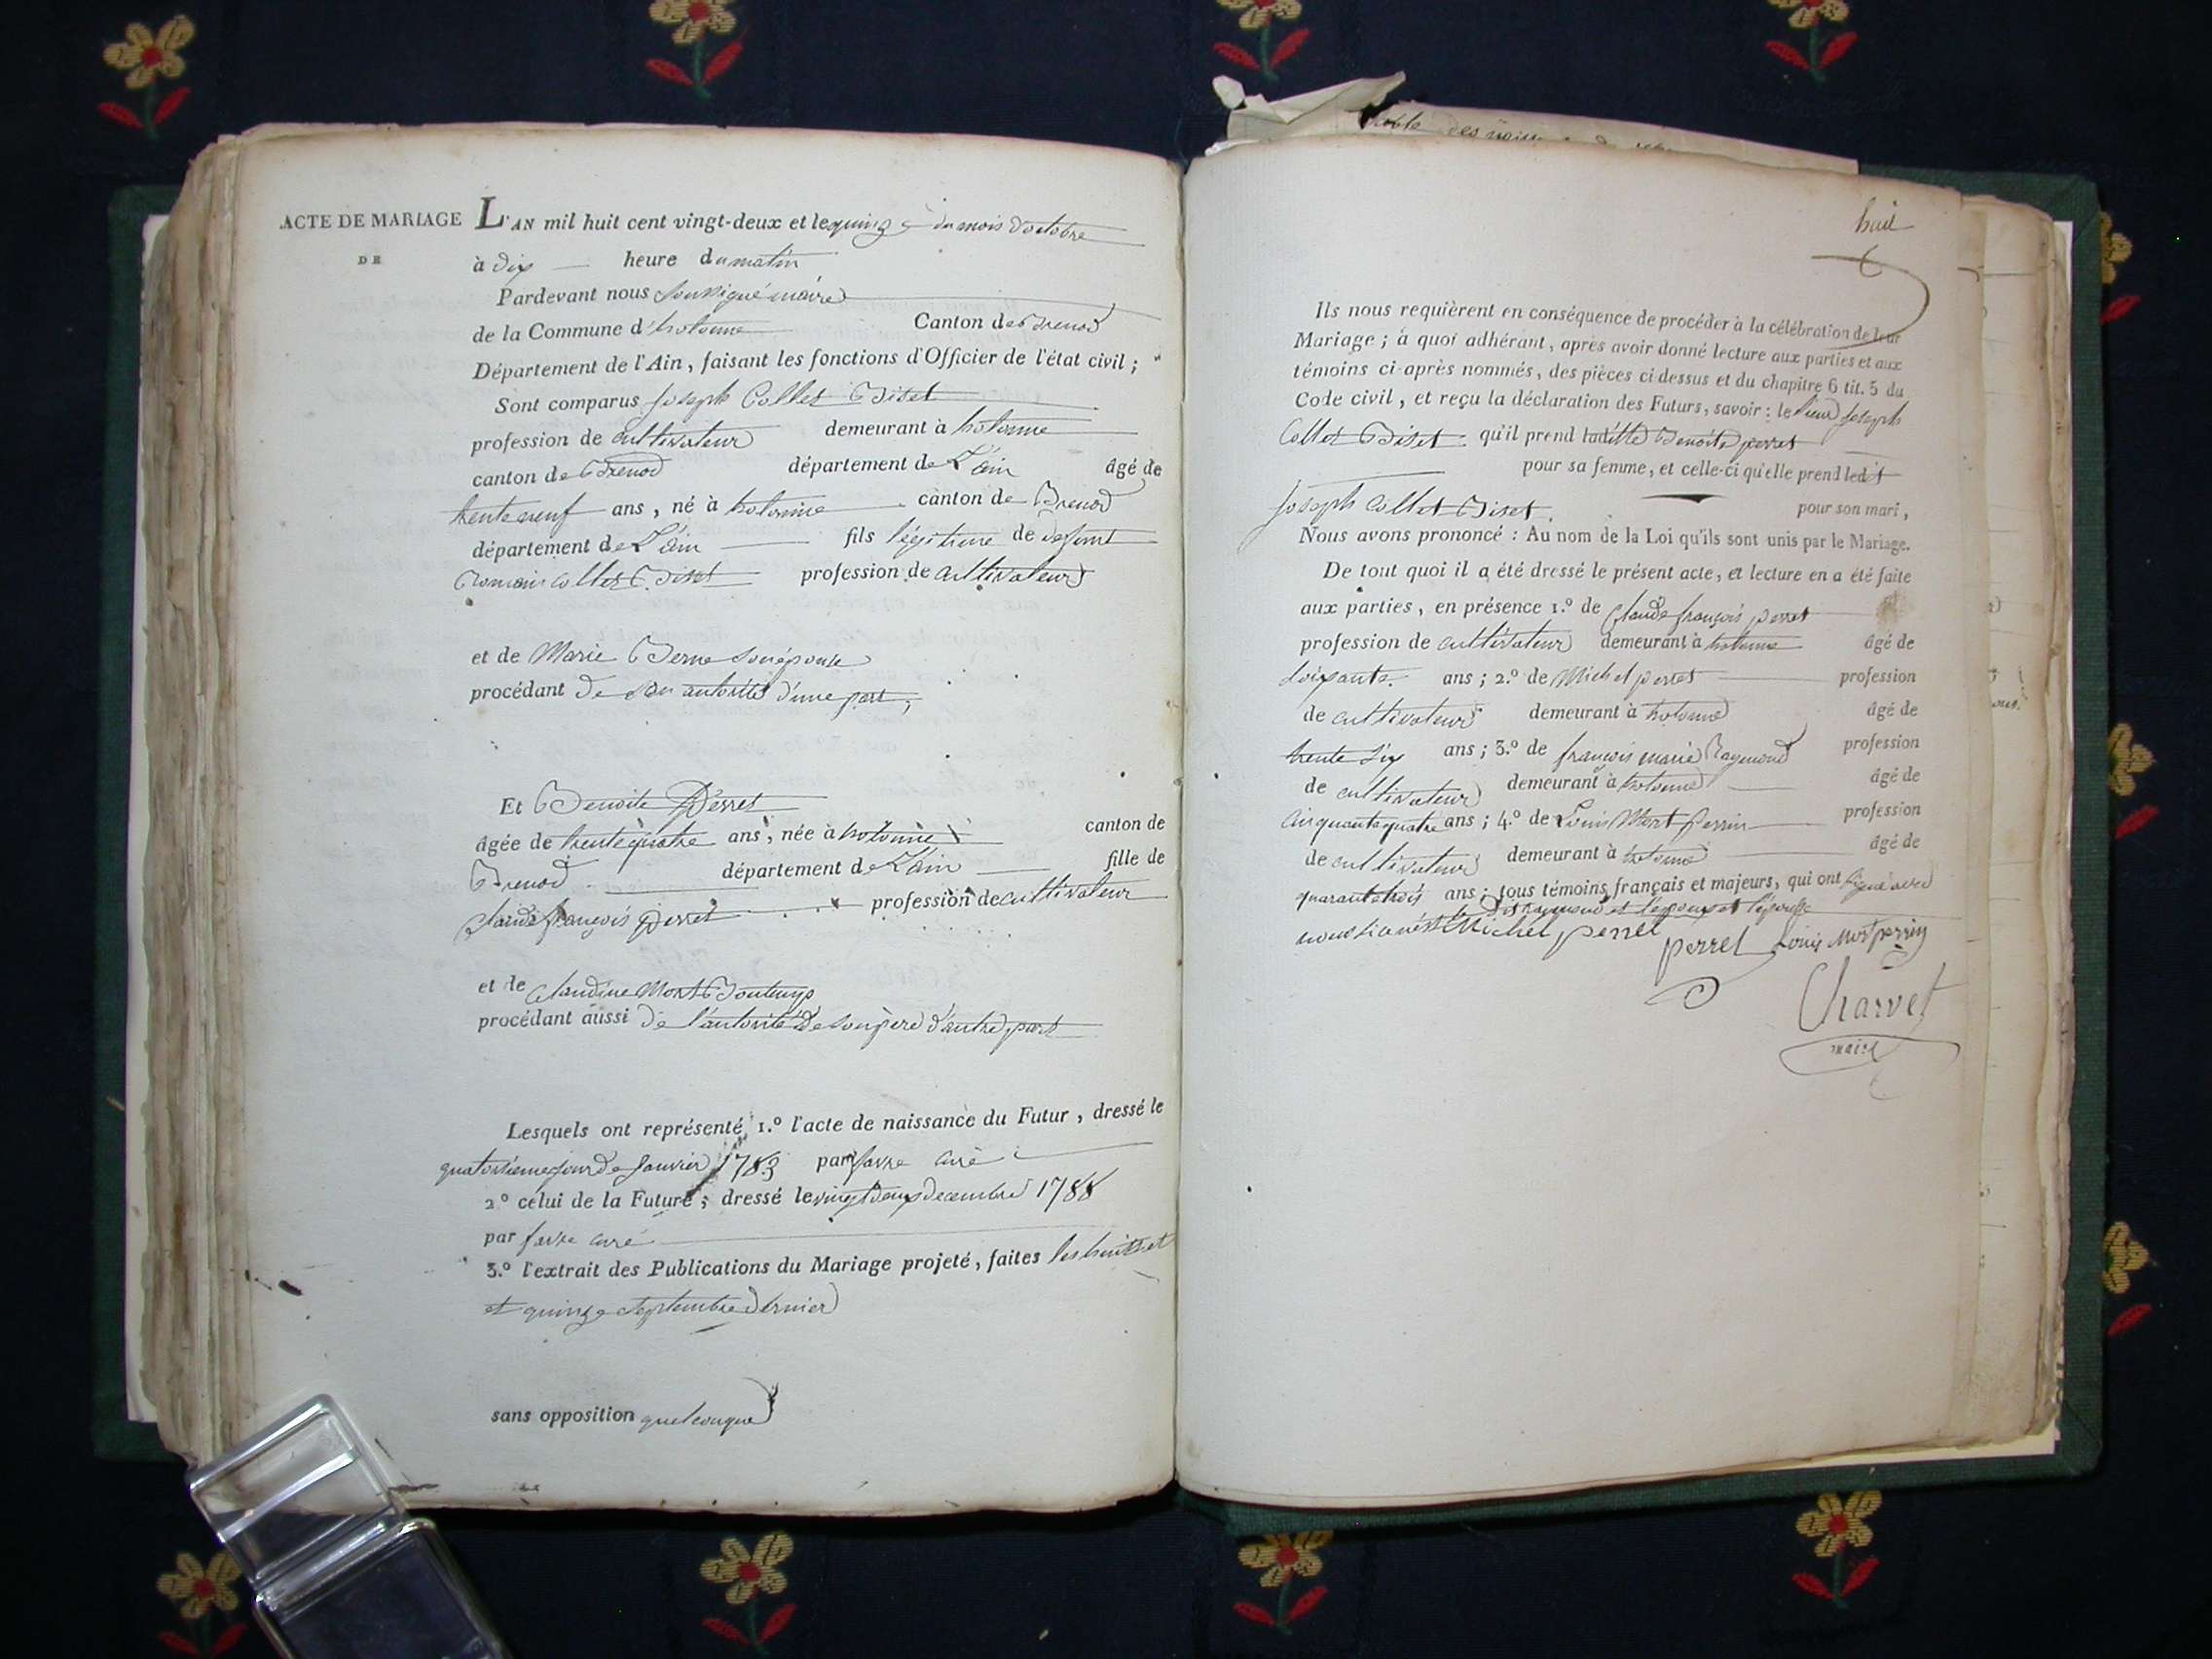 ACTE DE MARIAGE
DE
L'AN mil huit cent vingt-deux et le quinze du mois d'octobre
à dix heure du matin
Pardevant nous soussigné maire
de la Commune d'hotonne Canton de Brenod
Département de l'Ain, faisant les fonctions d'Officier de l'état civil;
Sont comparus Joseph Collet Biset
profession de cultivateur demeurant à hotonne
canton de Brenod département de L'ain âgé de
trente neuf ans, né à hotonne canton de Brenod
département de L'ain fils légitime de defunt
Romain Collet Biset profession de cultivateur
et de Marie Berne son épouse
procédant de son autorité d'une part,
Et Benoite Perret
âgée de trente quatre ans, née à hotonne canton de
Brenod département de L'ain fille de
Claude françois perret profession de cultivateur
et de Claudine Mont
procédant aussi de l'autorité de son père d'autre part
Lesquels ont représenté 1.º l'acte de naissance du Futur, dressé le
quatorsieme jour de Janvier 1783 par favre curé
2º celui de la Future; dressé le vingt deux decembre 1788
par favre curé
3.º l'extrait des Publications du Mariage projeté, faites les huit et
et quinze septembre dernier
sans opposition quelconque
table des
huit
Ils nous requièrent en conséquence de procéder à la célébration de leur
Mariage; à quoi adhérant, après avoir donné lecture aux parties et aux
témoins ci-après nommés, des pièces ci dessus et du chapitre 6 tit. 5 du
Code civil, et reçu la déclaration des Futurs, savoir: le sieur Joseph
Collet Biset qu'il prend ladítte Benoite perret
pour sa femme, et celle-ci qu'elle prend ledit
Joseph Collet Biset. pour son mari,
Nous avons prononcé: Au nom de la Loi qu'ils sont unis par le Mariage.
De tout quoi il a été dressé le présent acte, et lecture en a été faite
aux parties, en présence 1.º de Claude françois perret
profession de cultivateur demeurant à hotonne âgé de
soixante. ans; 2.º de Michel perret profession
de cultivateur demeurant à hotonne âgé de
trente six ans; 3.º de françois marie Raymond profession
de cultivateur demeurant à hotonne âgé de
cinquante quatre ans; 4.º de Louis Mort perrin profession
de cultivateur demeurant à hotonne âgé de
quarante trois ans; tous témoins français et majeurs, qui ont signé avec
Raymond et l'epoux et l'épouse
nous Michel perret perret Louis mort perrin
Charvet
maire